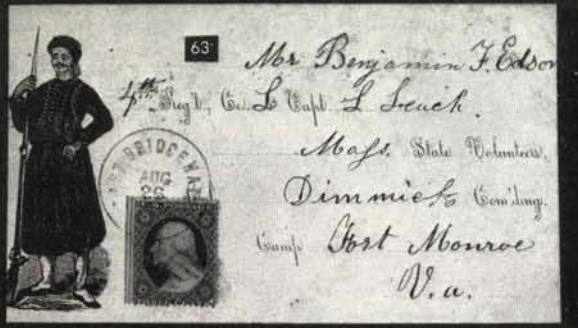 63
Mr Benjamin F. Edson
4th Reg't, Co. L Capt. L Leach.
Mass. State Volunteers,
Dimmick Com'ding.
Camp Fort Monroe
V.a.
BRIDGEWA
AUG
26